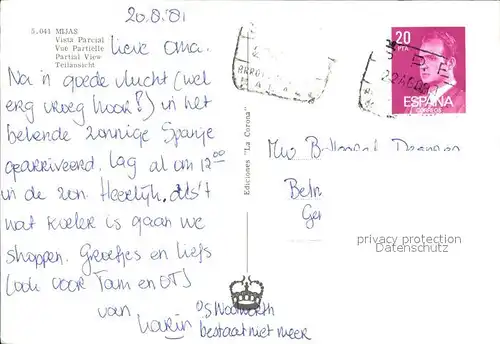 20.8.'81
5.041 MIJAS
Vista Parcial
Vue Partielle
Partial View
Teilansicht
lieve oma.
Na 'n goede vlucht (wel
erg vroeg hoor!) in het
bekende zonnige Spanje
gearriveerd. Lag al om 12.00
in de zon. Heerlijk. Als 't
wat koeler is gaan we
shoppen. Groetjes en liefs
(ook voor Tam en OT)
van
Karin
'S Woolworth
bestaat niet meer
Ediciones "La Corona"
20
PTA
ESPAÑA
CORREOS
Mw
privacy protection
Datenschutz